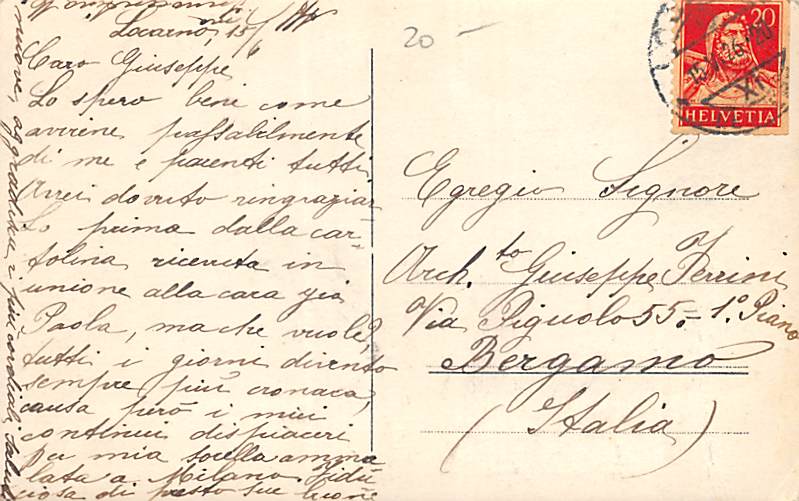 Locarno, 15/
Caro Giuseppe
Lo spero bene come
avviene passabilmente
di me e parenti tutti
Avrei dovuto ringraziar
Lo prima dalla car-
tolina ricevuta in
unione alla cara zia
Paola, ma che vuole,
tutti i giorni divento
sempre più cronaca,
causa però i miei
continui dispiaceri
La mia sorella amma-
lata a Milano. Fidu-
ciosa di presto sue buone
nuove, aggradisca i più cordiali saluti
20 -
20
HELVETIA
Egregio Signore
Arch.to Giuseppe Ferrini
Via Pignolo 55 - 1° Piano
Bergamo
(Italia)